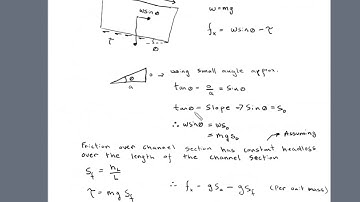 w = mg
wsinθ
fₓ = wsinθ - τ
τ
θ
→ using small angle approx.
θ
a
tanθ = o/a = sinθ
tanθ - slope → sinθ = S₀
∴ wsinθ = wS₀
= mgS₀
Assuming
Friction over channel section has constant headloss
over the length of the channel section
S_f = h_L/L
τ = mgS_f
∴ fₓ = gS₀ - gS_f (per unit mass)